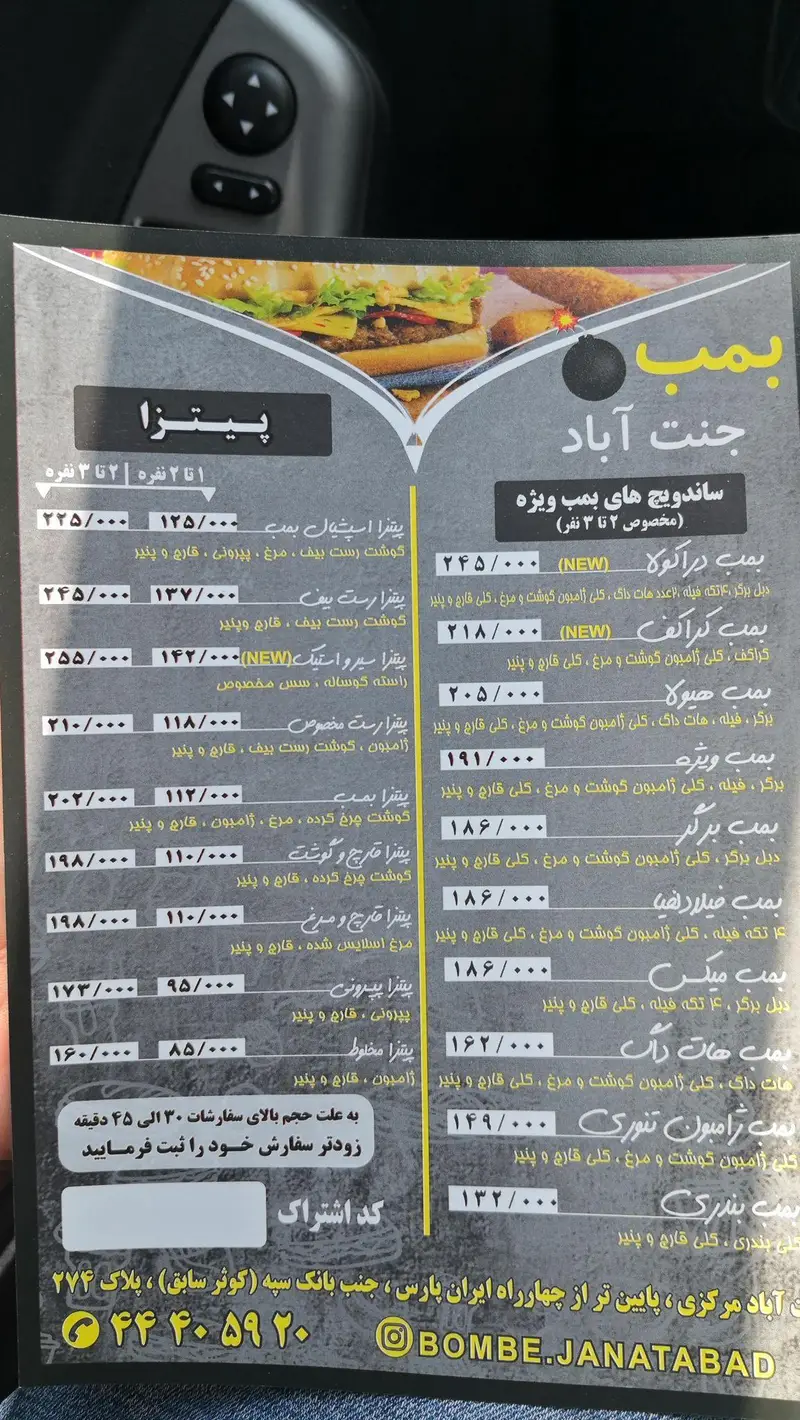 بمب
جنت آباد
ساندویچ های بمب ویژه
(مخصوص ۲ تا ۳ نفر)
بمب دراکولا (NEW) ۲۴۵/۰۰۰
دبل برگر ،۴تکه فیله ،۲عدد هات داگ ، کلی ژامبون گوشت و مرغ ، کلی قارچ و پنیر
بمب کراکف (NEW) ۲۱۸/۰۰۰
کراکف ، کلی ژامبون گوشت و مرغ ، کلی قارچ و پنیر
بمب هیولا ۲۰۵/۰۰۰
برگر ، فیله ، هات داگ ، کلی ژامبون گوشت و مرغ ، کلی قارچ و پنیر
بمب ویژه ۱۹۱/۰۰۰
برگر ، فیله ، کلی ژامبون گوشت و مرغ ، کلی قارچ و پنیر
بمب برگر ۱۸۶/۰۰۰
دبل برگر ، کلی ژامبون گوشت و مرغ ، کلی قارچ و پنیر
بمب فیلادلفیا ۱۸۶/۰۰۰
۴ تکه فیله ، کلی ژامبون گوشت و مرغ ، کلی قارچ و پنیر
بمب میکس ۱۸۶/۰۰۰
دبل برگر ، ۴ تکه فیله ، کلی قارچ و پنیر
بمب هات داگ ۱۶۲/۰۰۰
هات داگ ، کلی ژامبون گوشت و مرغ ، کلی قارچ و پنیر
بمب ژامبون تنوری ۱۴۹/۰۰۰
کلی ژامبون گوشت و مرغ ، کلی قارچ و پنیر
بمب بندری ۱۳۲/۰۰۰
کلی بندری ، کلی قارچ و پنیر
پیتزا
۱ تا ۲ نفره | ۲ تا ۳ نفره
پیتزا اسپشیال بمب ۱۲۵/۰۰۰ ۲۲۵/۰۰۰
گوشت رست بیف ، مرغ ، پپرونی ، قارچ و پنیر
پیتزا رست بیف ۱۳۷/۰۰۰ ۲۴۵/۰۰۰
گوشت رست بیف ، قارچ وپنیر
پیتزا سیر و استیک (NEW) ۱۴۲/۰۰۰ ۲۵۵/۰۰۰
راسته گوساله ، سس مخصوص
پیتزا رست مخصوص ۱۱۸/۰۰۰ ۲۱۰/۰۰۰
ژامبون ، گوشت رست بیف ، قارچ و پنیر
پیتزا بمب ۱۱۲/۰۰۰ ۲۰۲/۰۰۰
گوشت چرخ کرده ، مرغ ، ژامبون ، قارچ و پنیر
پیتزا قارچ و گوشت ۱۱۰/۰۰۰ ۱۹۸/۰۰۰
گوشت چرخ کرده ، قارچ و پنیر
پیتزا قارچ و مرغ ۱۱۰/۰۰۰ ۱۹۸/۰۰۰
مرغ اسلایس شده ، قارچ و پنیر
پیتزا پپرونی ۹۵/۰۰۰ ۱۷۳/۰۰۰
پپرونی ، قارچ و پنیر
پیتزا مخلوط ۸۵/۰۰۰ ۱۶۰/۰۰۰
ژامبون ، قارچ و پنیر
به علت حجم بالای سفارشات ۳۰ الی ۴۵ دقیقه
زودتر سفارش خود را ثبت فرمایید
کد اشتراک
آباد مرکزی ، پایین تر از چهارراه ایران پارس ، جنب بانک سپه (کوثر سابق) ، پلاک ۲۷۴
۴۴ ۴۰ ۵۹ ۲۰
BOMBE.JANATABAD